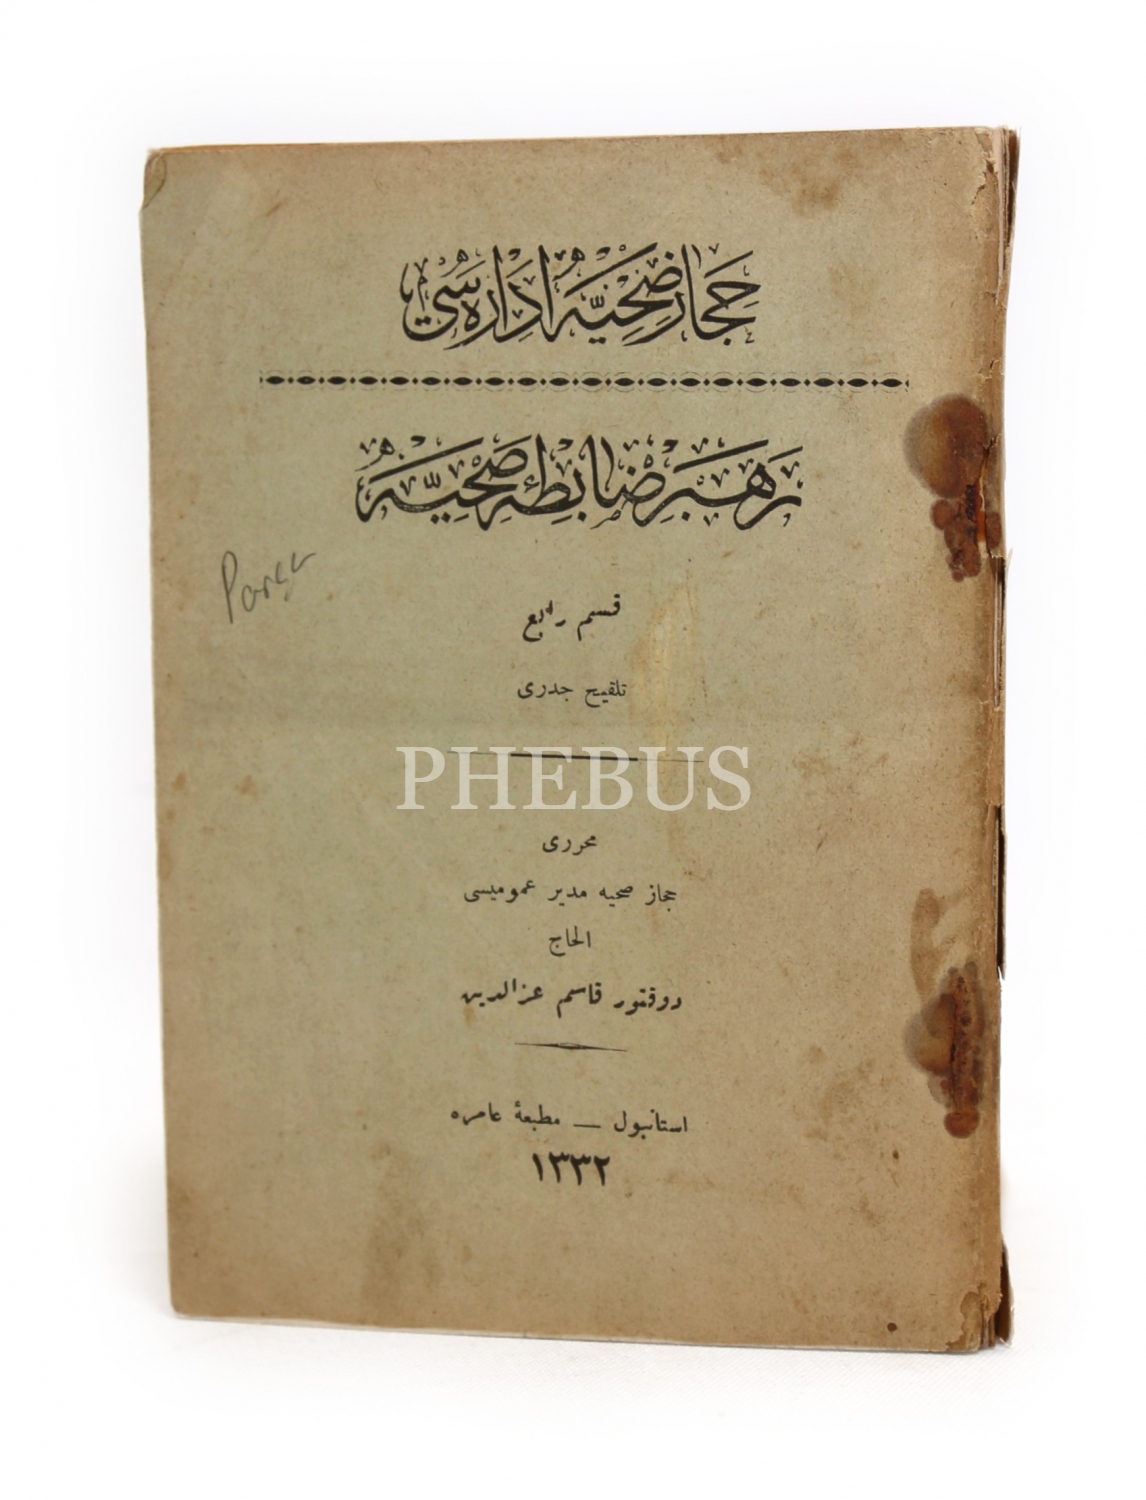 حجاز صحیه اداره سی
رهبر ضابطهٔ صحیه
قسم رابع
تلقیح جدری
PHEBUS
محرری
حجاز صحیه مدیر عمومیسی
الحاج
دوقتور قاسم عزالدین
استانبول — مطبعهٔ عامره
١٣٣٢